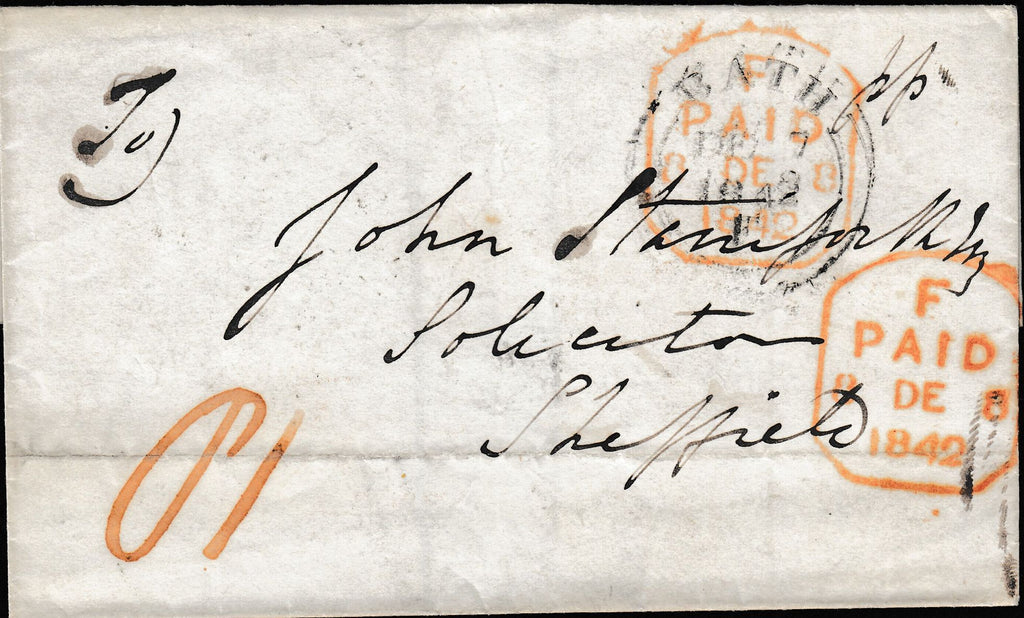 To
pp
John Stamforth Esq
Solicitor
Sheffield
P1
BATH
DE 7
1842
F
PAID
8 DE 8
1842
F
PAID
8 DE 8
1842